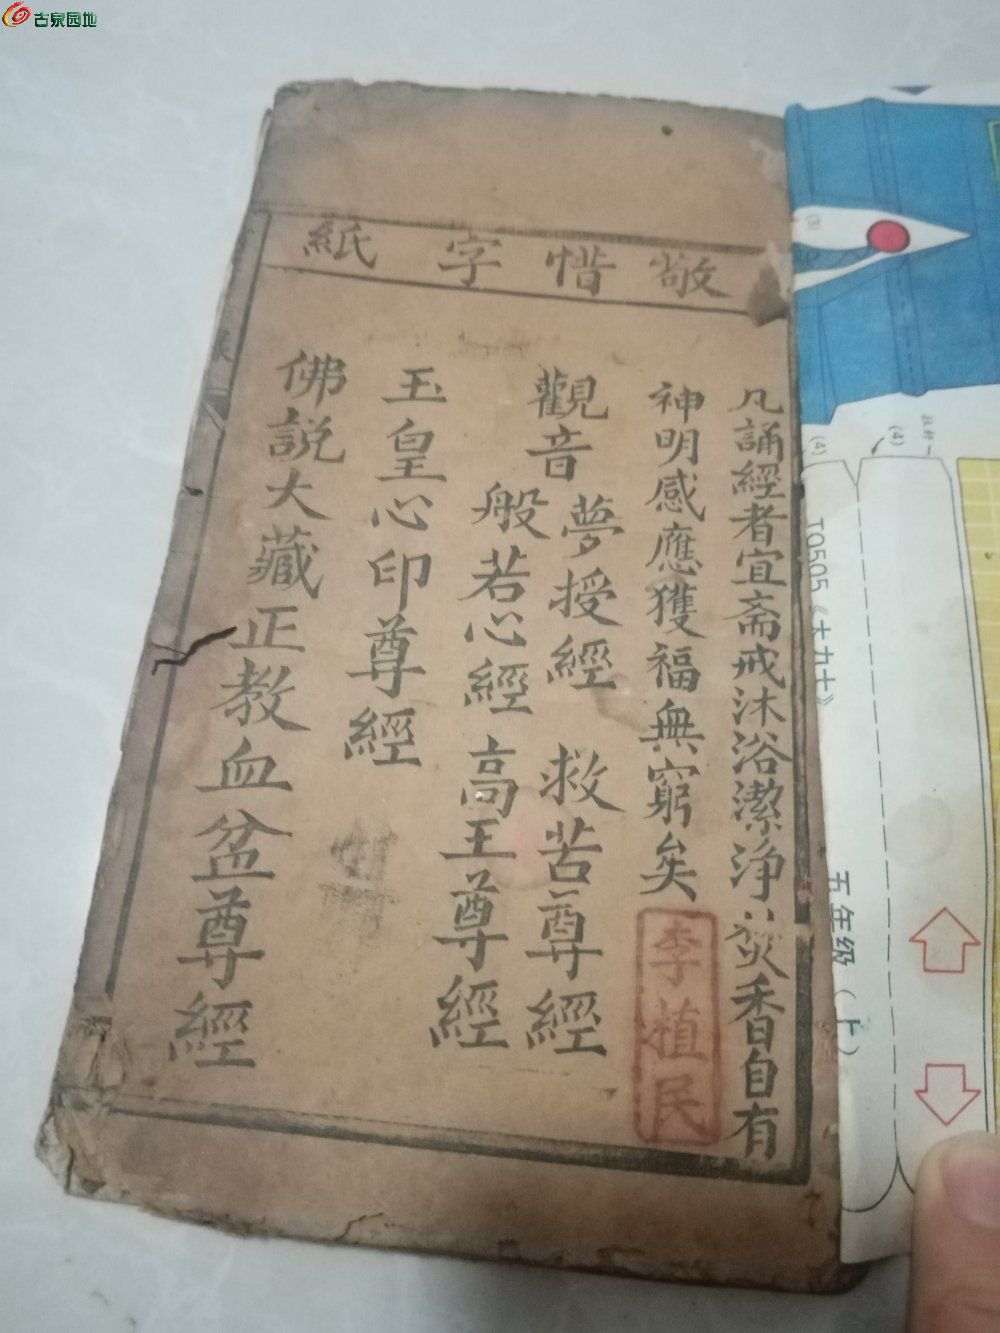 古泉园地
敬惜字紙
凡誦經者宜斋戒沐浴潔淨焚香自有
神明感應獲福無窮矣
李植民
觀音
夢授經 救苦尊經
般若心經 高王尊經
玉皇心印尊經
佛説大藏正教血盆尊經
(4)
(4)
TQ505《大力士》
五年级(上)